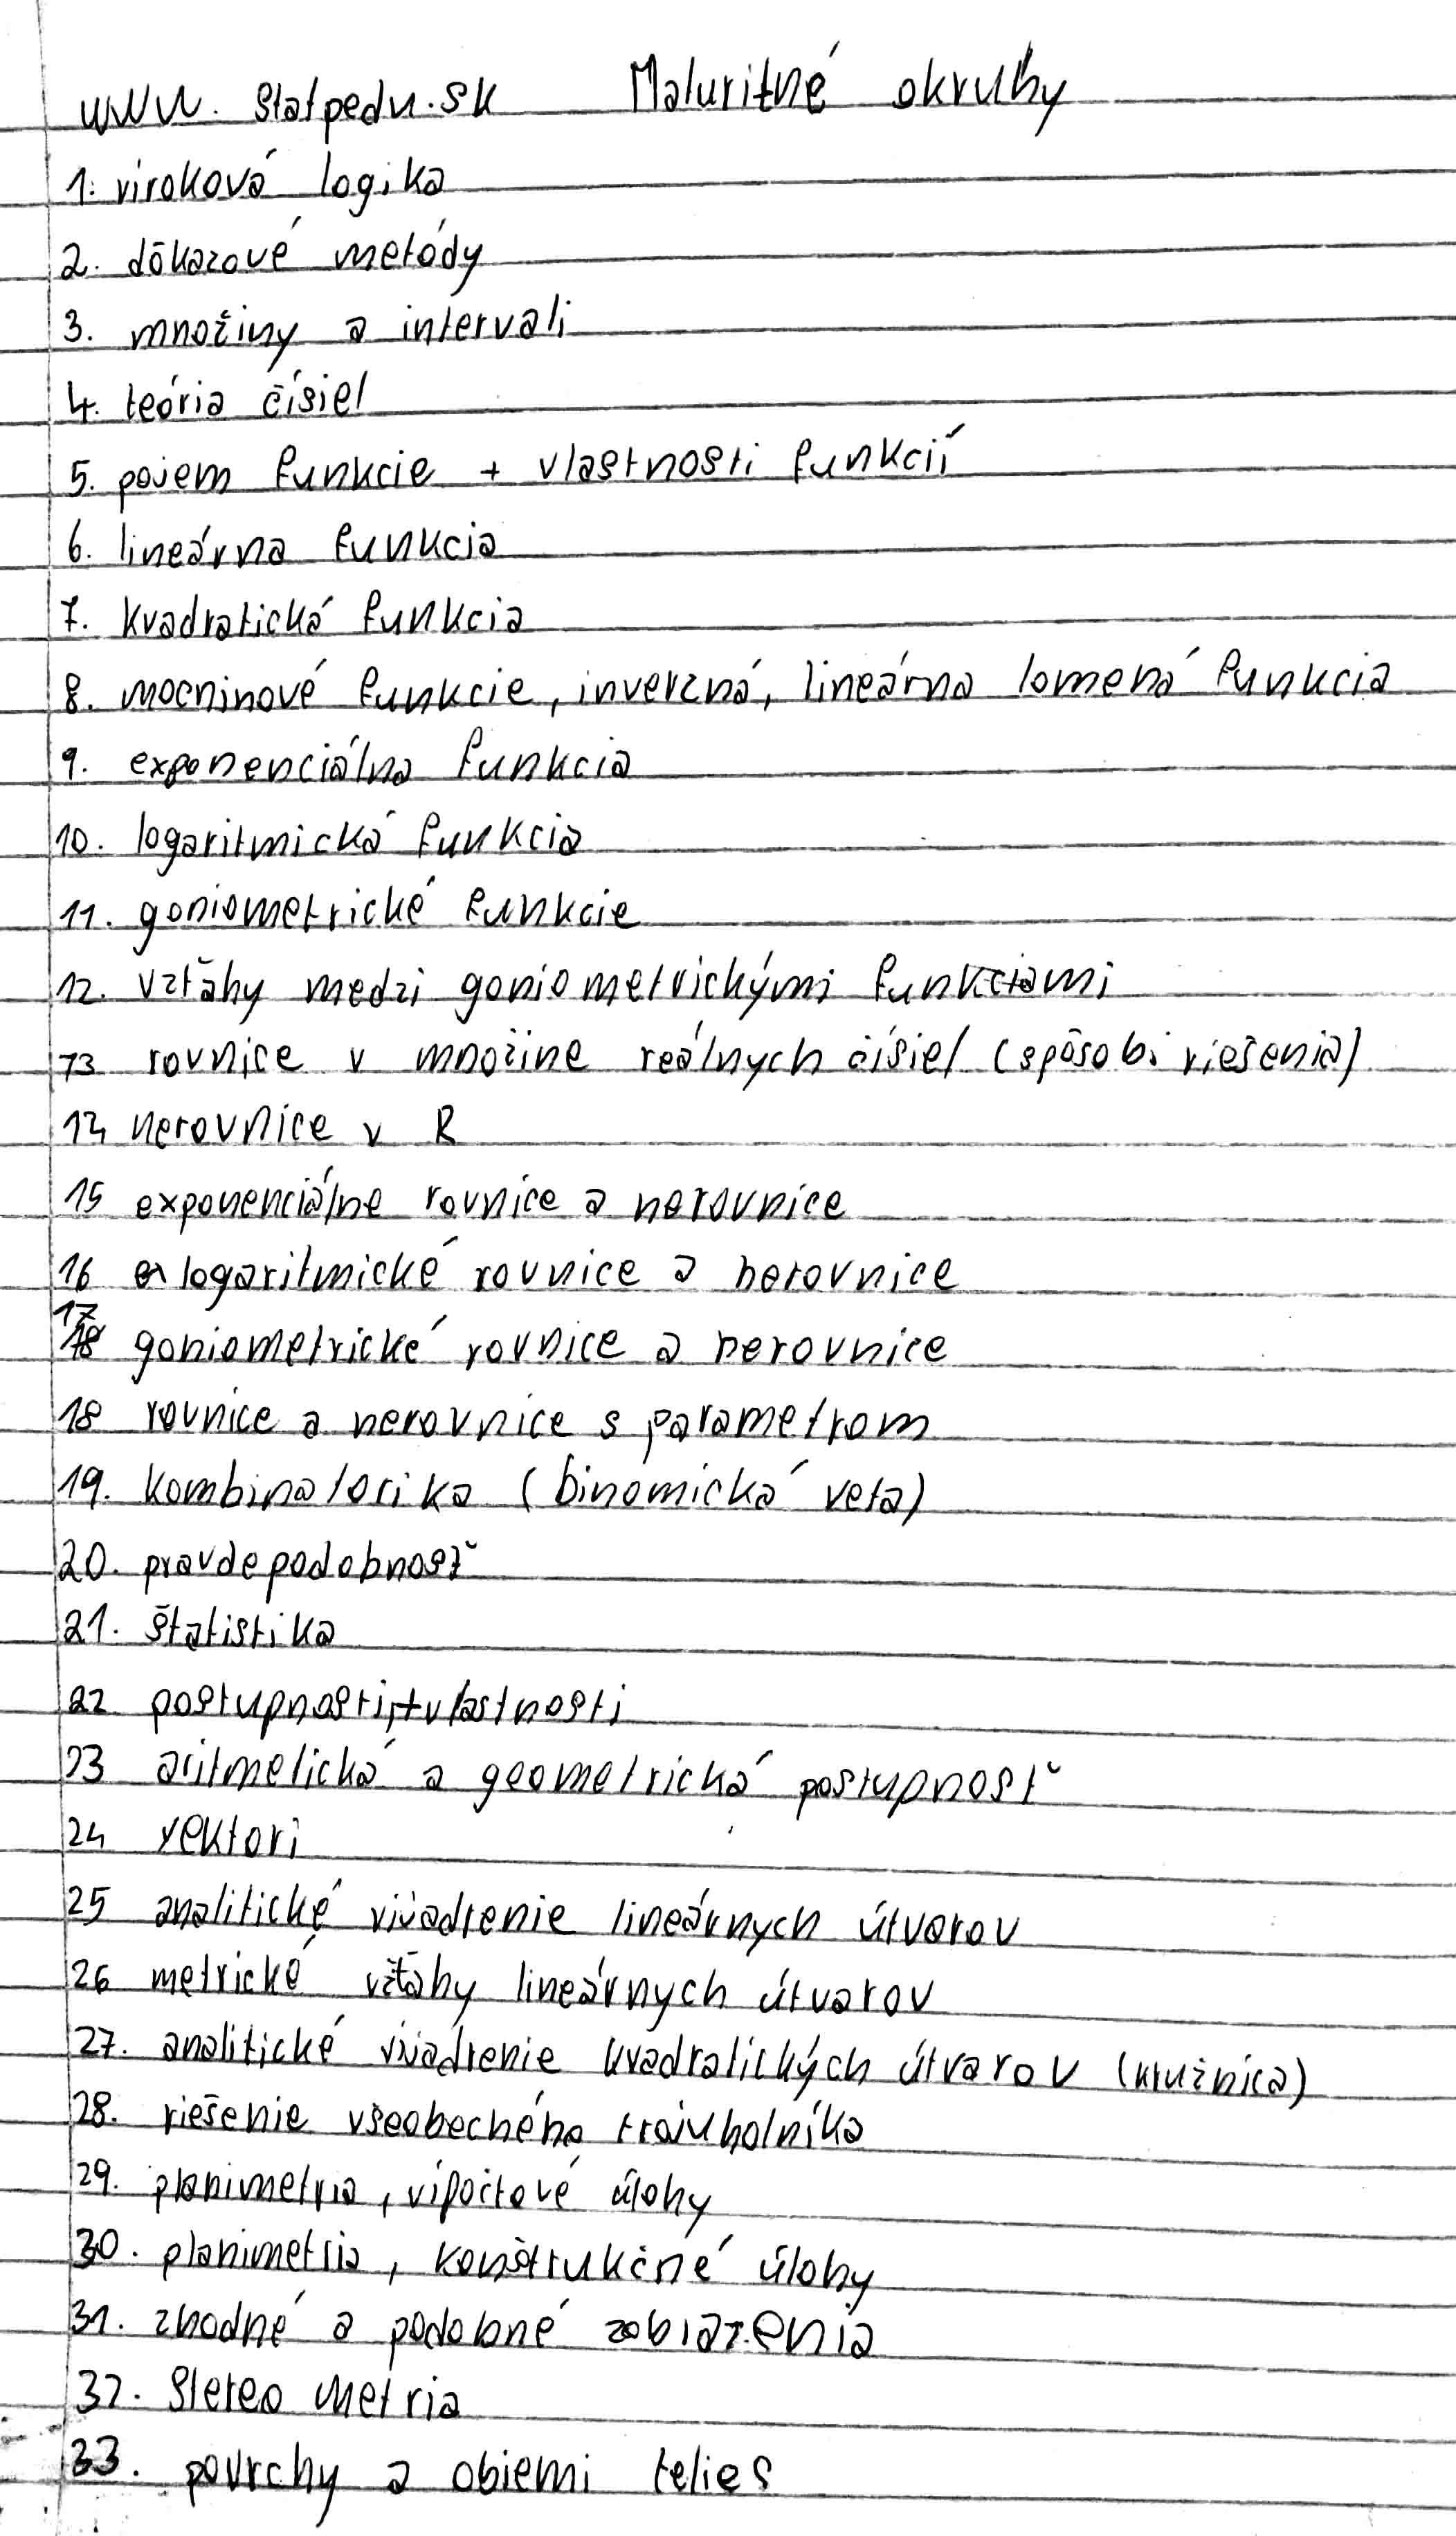 www.statpedu.sk Maturitné okruhy
1. viroková logika
2. dôkazové metódy
3. množiny a intervali
4. teória čísiel
5. pojem funkcie + vlastnosti funkcií
6. lineárna funkcia
7. kvadratická funkcia
8. mocninové funkcie, inverzná, lineárna lomená funkcia
9. exponenciálna funkcia
10. logaritmická funkcia
11. goniometrické funkcie
12. vzťahy medzi goniometrickými funkciami
13 rovnice v množine reálnych čísiel (spôsobi riešenia)
14 nerovnice v R
15 exponenciálne rovnice a nerovnice
16 logaritmické rovnice a nerovnice
17 goniometrické rovnice a nerovnice
18 rovnice a nerovnice s parametrom
19. kombinatorika (binomická veta)
20. pravdepodobnosť
21. štatistika
22 postupnosti, + vlastnosti
23 aritmetická a geometrická postupnosť
24 vektori
25 analitické vijadrenie lineárnych útvarov
26 metrické vzťahy lineárnych útvarov
27. analitické vijadrenie kvadratických útvarov (kružnica)
28. riešenie všeobecného trojuholníka
29. planimetria, vípočtové úlohy
30. planimetria, konštrukčné úlohy
31. zhodné a podobné zobrazenia
32. Stereo metria
33. povrchy a obiemi telies